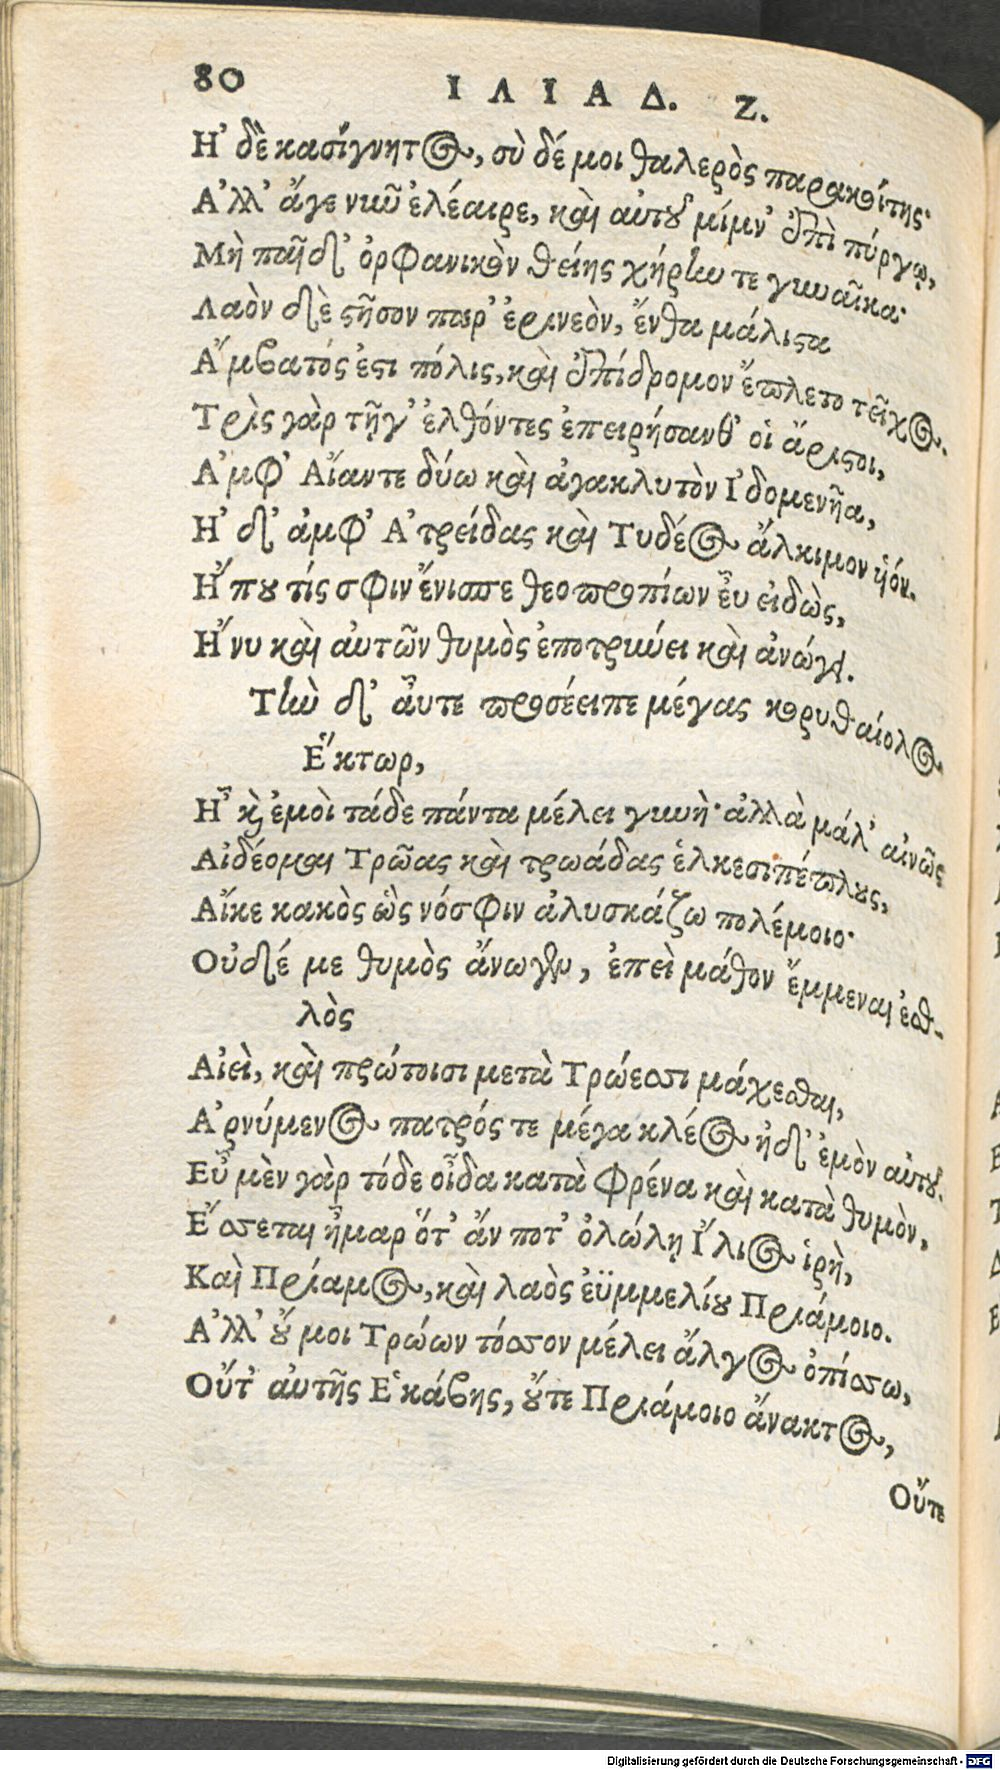 80 ΙΛΙΑΔ. Ζ.
Η᾿ δὲ κασίγνητος, σὺ δέ μοι θαλερὸς παρακοίτης·
Α᾿λλ᾿ ἄγε νῦν ἐλέαιρε, καὶ αὐτοῦ μίμν᾿ ἐπὶ πύργῳ,
Μὴ παῖδ᾿ ὀρφανικὸν θείης χήρην τε γυναῖκα·
Λαὸν δὲ στῆσον παρ᾿ ἐρινεὸν, ἔνθα μάλιστα
Α῎μβατός ἐστι πόλις, καὶ ἐπίδρομον ἔπλετο τεῖχος.
Τρὶς γὰρ τῇγ᾿ ἐλθόντες ἐπειρήσανθ᾿ οἱ ἄριστοι,
Α᾿μφ᾿ Αἴαντε δύω καὶ ἀγακλυτὸν Ι᾿δομενῆα,
Η᾿ δ᾿ ἀμφ᾿ Α᾿τρείδας καὶ Τυδέος ἄλκιμον υἱόν.
Η῎ που τίς σφιν ἔνισπε θεοπροπίων εὖ εἰδὼς,
Η῎ νυ καὶ αὐτῶν θυμὸς ἐποτρύνει καὶ ἀνώγει.
Τὴν δ᾿ αὖτε προσέειπε μέγας κορυθαίολος
Ε῞κτωρ,
Η῏ καὶ ἐμοὶ τάδε πάντα μέλει γυνὴ· ἀλλὰ μάλ᾿ αἰνῶς
Αἰδέομαι Τρῶας καὶ τρωάδας ἑλκεσιπέπλους,
Αἴκε κακὸς ὣς νόσφιν ἀλυσκάζω πολέμοιο·
Οὐδέ με θυμὸς ἄνωγεν, ἐπεὶ μάθον ἔμμεναι ἐσθ-
λὸς
Αἰεὶ, καὶ πρώτοισι μετὰ Τρώεσσι μάχεσθαι,
Α᾿ρνύμενος πατρός τε μέγα κλέος ἠδ᾿ ἐμὸν αὐτοῦ.
Εὖ μὲν γὰρ τόδε οἶδα κατὰ φρένα καὶ κατὰ θυμὸν,
Ε῎σσεται ἦμαρ ὅτ᾿ ἄν ποτ᾿ ὀλώλῃ Ι῎λιος ἱρὴ,
Καὶ Πρίαμος, καὶ λαὸς ἐϋμμελίου Πριάμοιο.
Α᾿λλ᾿ οὔ μοι Τρώων τόσσον μέλει ἄλγος ὀπίσσω,
Οὔτ᾿ αὐτῆς Ε῾κάβης, οὔτε Πριάμοιο ἄνακτος,
Οὔτε
Digitalisierung gefördert durch die Deutsche Forschungsgemeinschaft - DFG